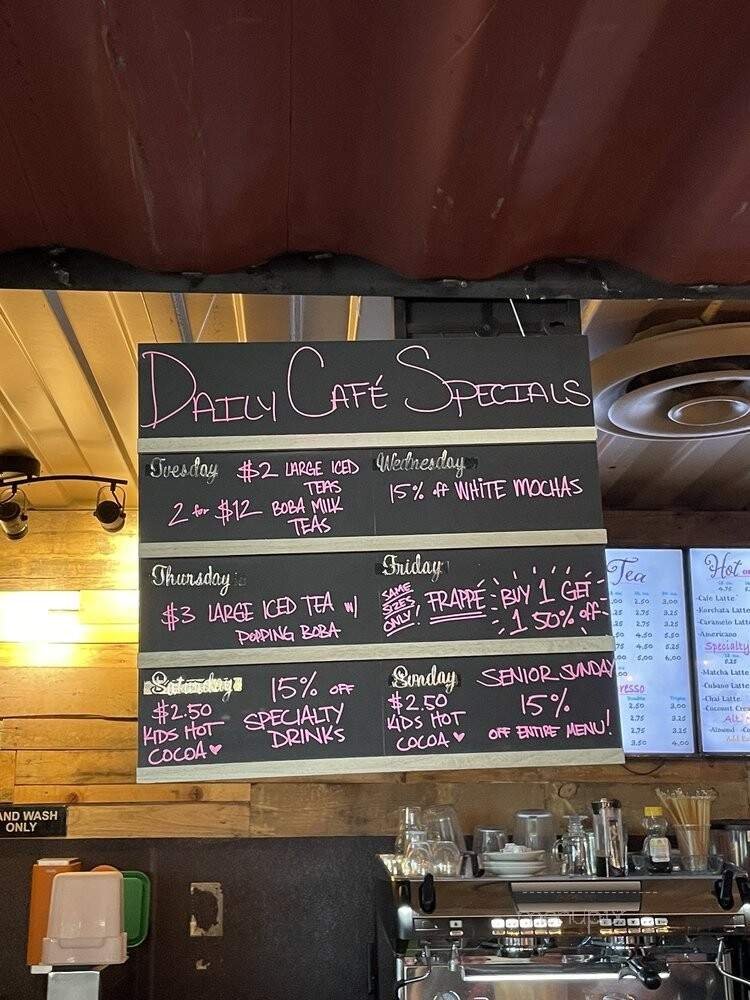 DAILY CAFÉ SPECIALS
Tuesday $2 LARGE ICED
TEAS
2 for $12 BOBA MILK
TEAS
Wednesday
15% off WHITE MOCHAS
Thursday
$3 LARGE ICED TEA w/
POPPING BOBA
Friday
SAME
SIZES
ONLY!
FRAPPÉ
BUY 1 GET
1 50% off
Saturday
$2.50
KIDS HOT
COCOA ♥
15% OFF
SPECIALTY
DRINKS
Sunday
$2.50
KIDS HOT
COCOA ♥
SENIOR SUNDAY
15%
OFF ENTIRE MENU!
Tea
2.50 3.00
2.75 3.25
2.75 3.25
4.50 5.25
4.50 5.25
5.00 6.00
resso
2.75 3.25
2.75 3.25
3.50 4.00
Hot
4.75
-Café Latte
-Horchata Latte
-Caramelo Latte
-Americano
Specialty
-Matcha Latte
-Cubano Latte
-Chai Latte
-Coconut Crea
Alt
-Almond
AND WASH
ONLY